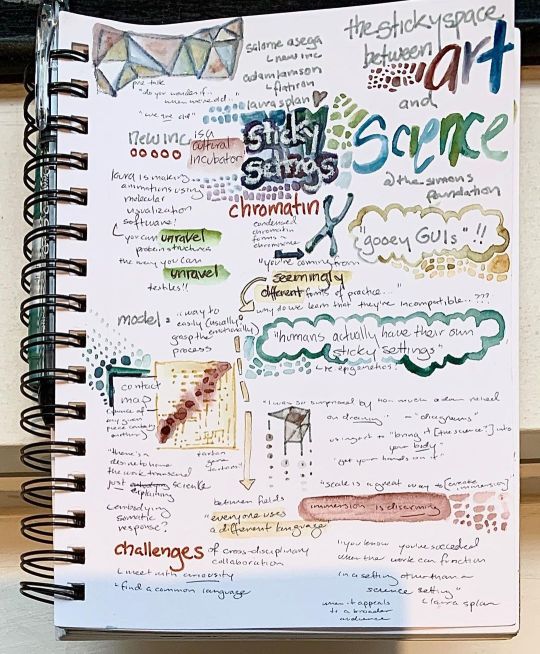 the sticky space
between art
and
science
@ the simons
foundation
salome asega
↳ new inc
adam lamson
↳ flatiron
laura splan
pre talk
"do you wonder if...
when we're old..."
"we are old"
new inc is a
cultural
incubator
sticky
settings
laura is making
animations using
molecular
visualization
software!
↳ you can unravel
protein structures
the way you can
unravel
textiles!!
chromatin
condensed
chromatin
forms a
chromosome
"gooey GUIs"!!
"you're coming from
seemingly
different fonts of practice..."
why do we learn that they're incompatible...???
model = "way to
easily (usually)
(emotionally)
grasp the
process
"humans actually have their own
sticky settings"
↳ re epigenetics
contact
map
(chance of
any given
piece contacting
another)
tartan
from
tartans
"I was so surprised by how much adam relied
on drawing" → "diagrams"
using art to "bring it [the science?] into
your body"
"get your hands on it"
"there's a
desire to have
the work transcend
just explaining science
embodying
somatic
response?
"scale is a great way to [create
immersion]
immersion is disarming
between fields
"everyone uses
a different language
challenges of cross-disciplinary
collaboration
↳ meet with curiosity
↳ find a common language
"you know you've succeeded
when the work can function
in a setting other than a
science setting"
↳ laura splan
when it appeals
to a broader
audience